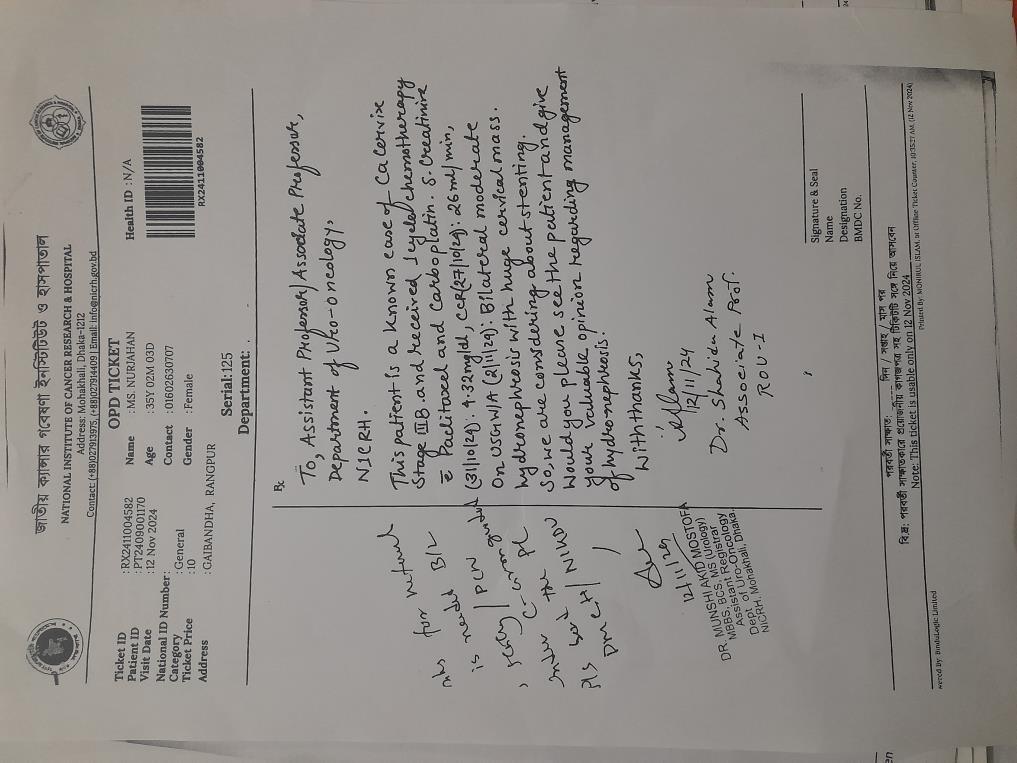 জাতীয় ক্যান্সার গবেষণা ইনস্টিটিউট ও হাসপাতাল
NATIONAL INSTITUTE OF CANCER RESEARCH & HOSPITAL
Address: Mohakhali, Dhaka-1212
Contact: (+88)027913975, (+88)027914409 | Email: info@nicrh.gov.bd
OPD TICKET
Health ID : N/A
Ticket ID : RX2411004582
Patient ID : PT2409001170
Visit Date : 12 Nov 2024
National ID Number:
Category : General
Ticket Price : 10
Address : GAIBANDHA, RANGPUR
Name : MS. NURJAHAN
Age : 35Y 02M 03D
Contact : 01602630707
Gender : Female
RX2411004582
Serial:125
Department: .
Rx
To, Assistant Professor/Associate Professor,
Department of Uro-oncology,
NICRH.
This patient is a known case of Ca Cervix
Stage III B. and received 1 cycle chemotherapy
c Paclitaxel and Carboplatin. S. Creatinine
(31/10/24): 4.32mg/dl, CCR(27/10/24): 26 ml/min,
On USG W/A (2/11/24): Bilateral moderate
hydronephrosis with huge cervical mass.
So, we are considering about stenting.
Would you please see the patient and give
your valuable opinion regarding management
of hydronephrosis.
With thanks,
12/11/24
Dr. Shahida Alam
Associate Prof.
ROU-I
for
is needed B/L
/ PCN guided
C-arm
under the
Pls
DMCH / NIKDU
12/11/24
DR. MUNSHI AKID MOSTOFA
MBBS, BCS, MS (Urology)
Assistant Registrar
Dept. of Uro-Oncology
NICRH. Mohakhali, Dhaka.
Signature & Seal
Name
Designation
BMDC No.
পরবর্তী সাক্ষাত: ...... দিন / সপ্তাহ / মাস পর
বি.দ্র: পরবর্তী সাক্ষাতকারে প্রয়োজনীয় কাগজপত্র সহ টিকিটটি সঙ্গে নিয়ে আসবেন
Note: This ticket is usable only on 12 Nov 2024
Printed By: MONIRUL ISLAM, at Offline Ticket Counter, 10:35:27 AM, (12 Nov 2024)
wered By: BinduLogic Limited